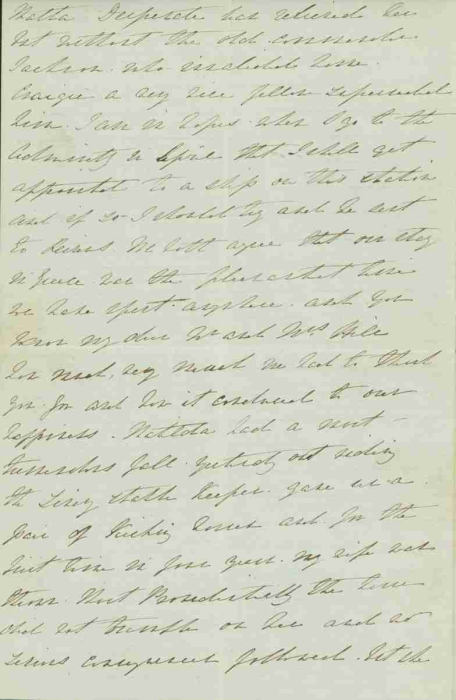 Malta Desperate has relieved her
but without the old commander
Jackson who invalided home.
Craigie a very nice fellow superseded
him. I am in hopes when I go to the
Admiralty in April that I shall get
appointed to a ship on this station
and if so I should try and be sent
to Piraeus. We both agree that our stay
in Greece was the pleasantest time
we have spent anywhere. and you
know my dear Mr and Mrs Hill
how much, very much we had to thank
you for and how it conduced to our
happiness. Matilda had a most
tremendous fall yesterday out riding
the Livery stable keeper gave us a
pair of kicking horses and for the
first time in four years my wife was
thrown. Most Providentially the horse
did not trample on her and no
serious consequences followed. but she